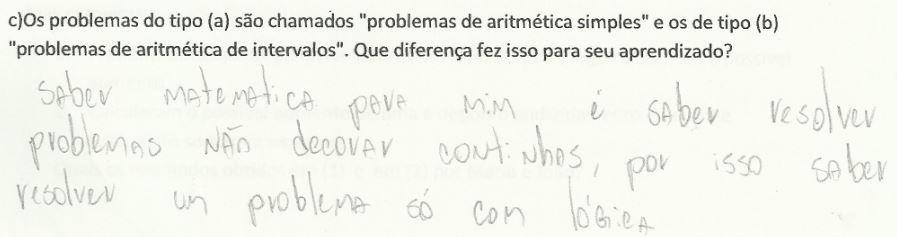 c)Os problemas do tipo (a) são chamados "problemas de aritmética simples" e os de tipo (b)
"problemas de aritmética de intervalos". Que diferença fez isso para seu aprendizado?
SABER MATEMATICA PARA MIM é SABER RESOLVER
PROBLEMAS NÃO DECORAR CONTINHAS, POR ISSO SABER
RESOLVER UM PROBLEMA SÓ COM LÓGICA